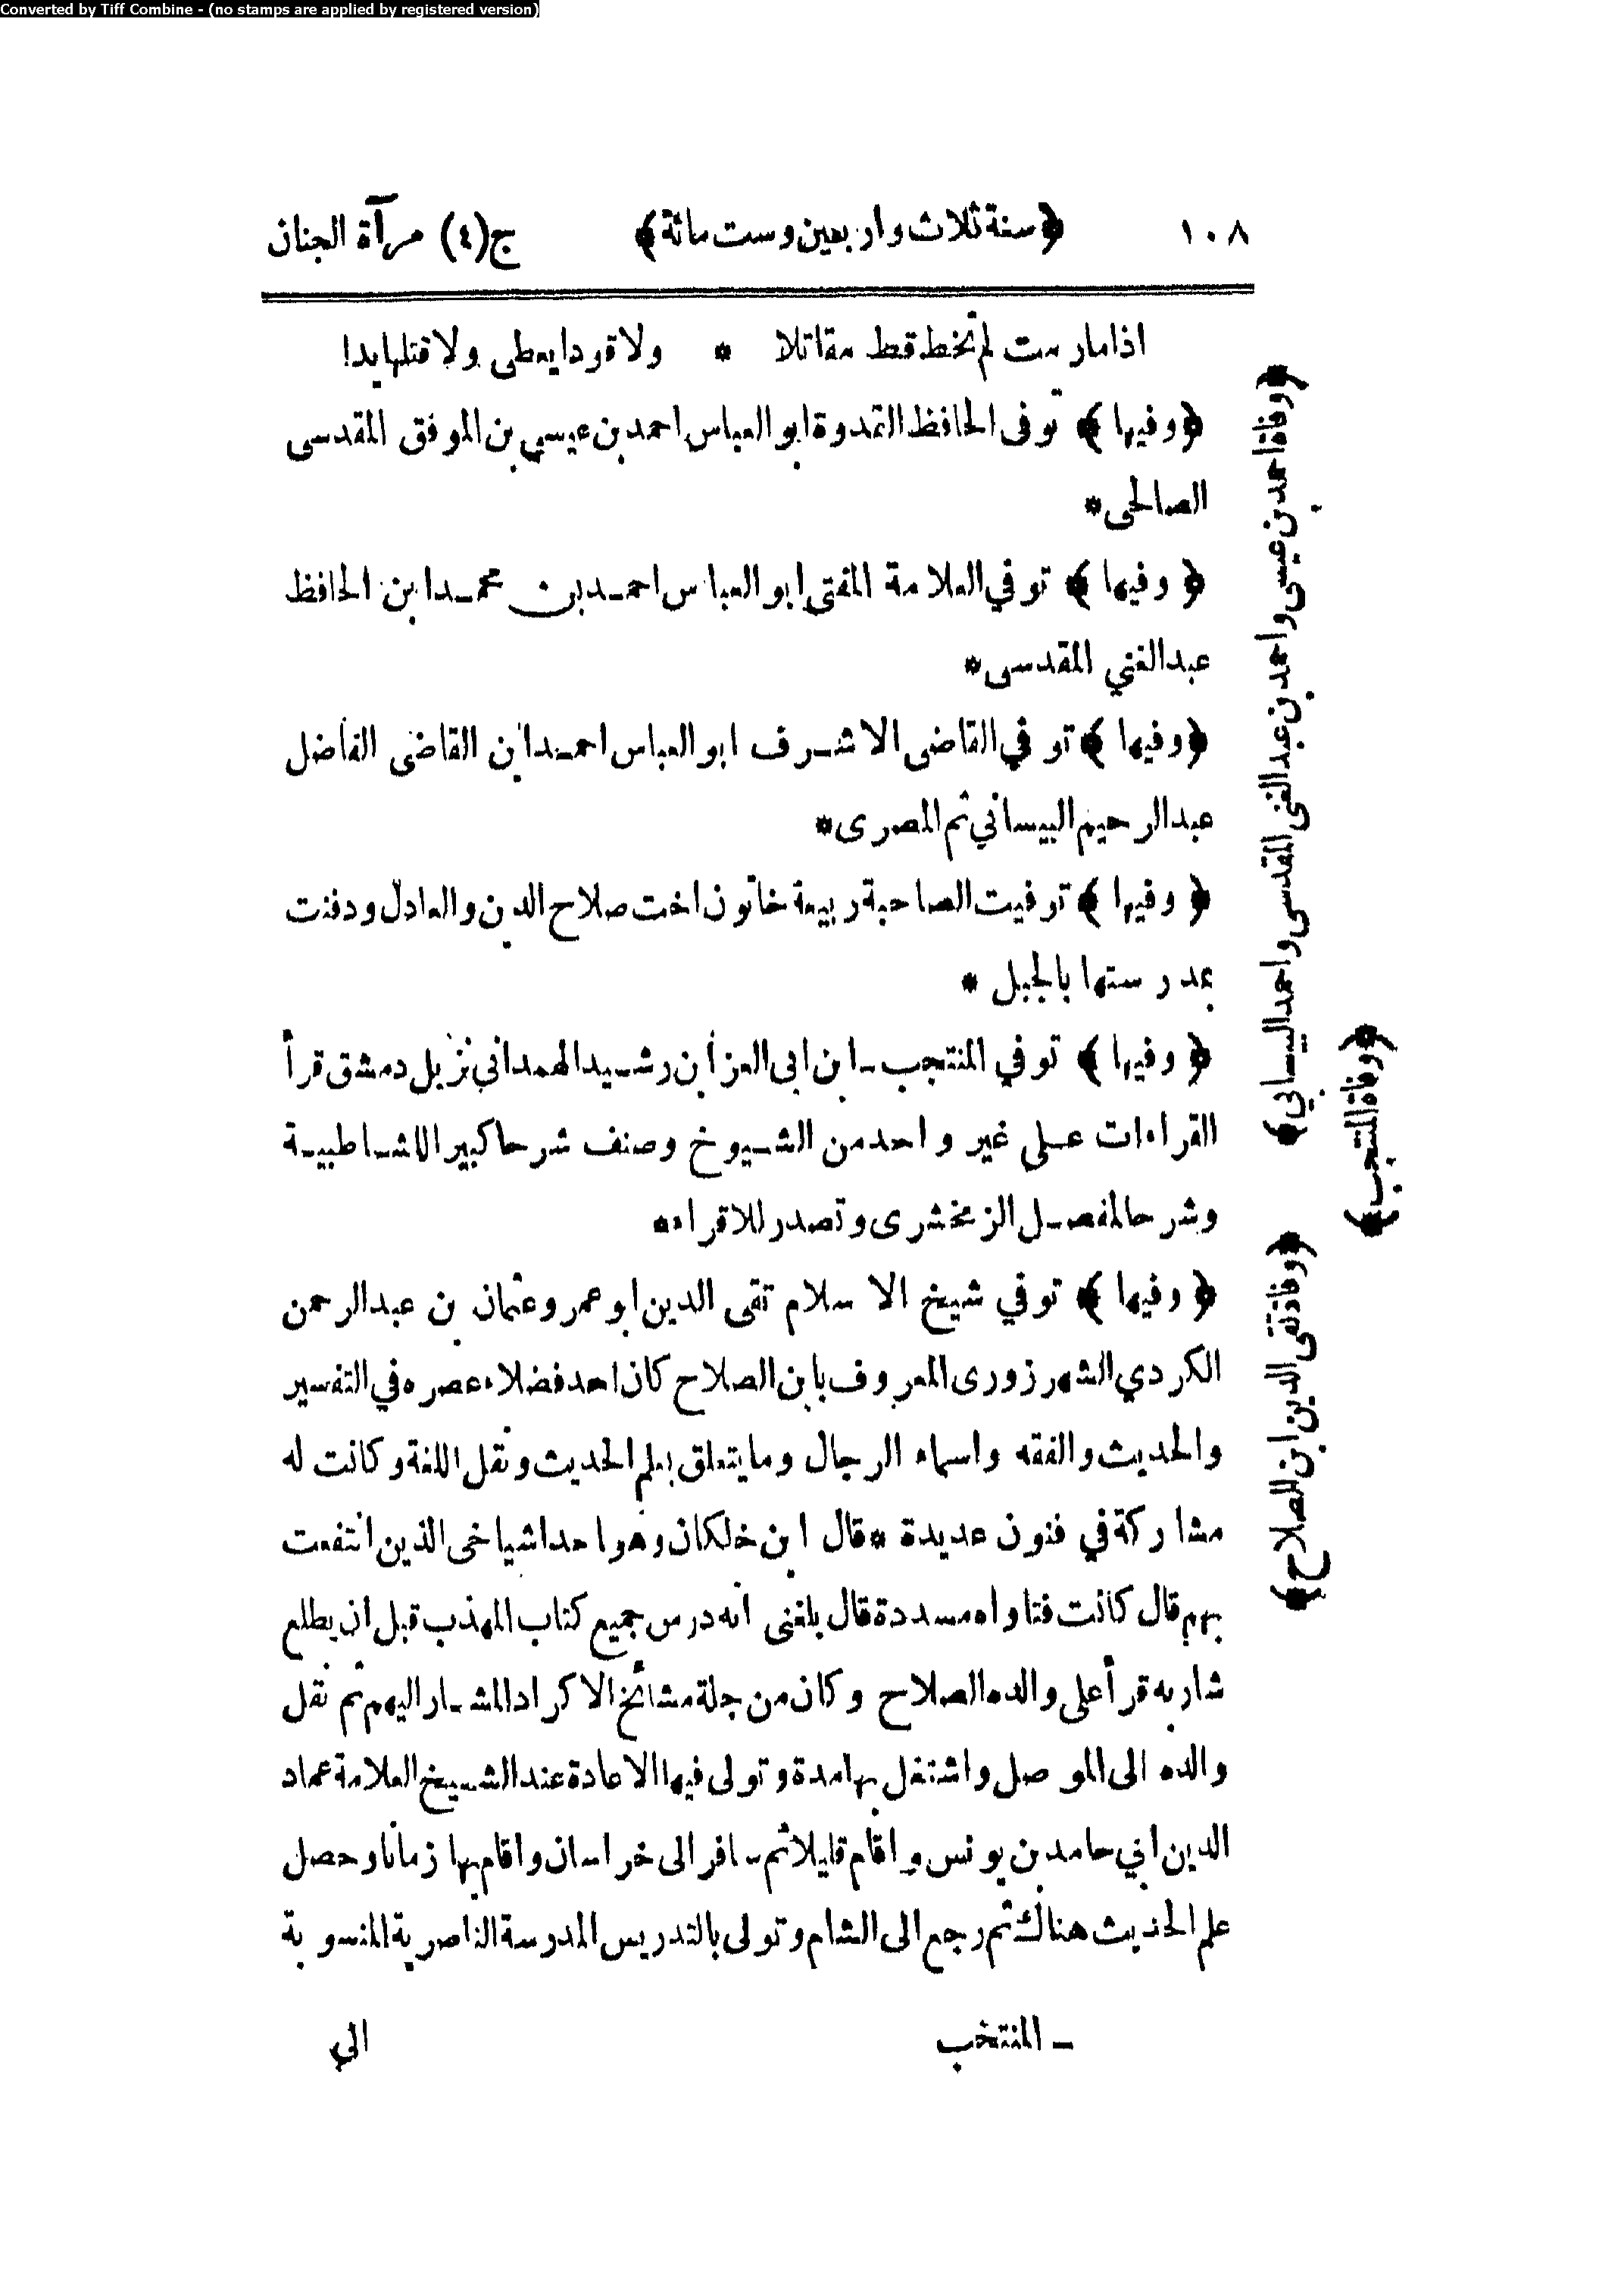 Converted by Tiff Combine - (no stamps are applied by registered version)
١٠٨ ﴿سنة ثلاث واربعين وست مائة﴾ ج(٤) مرآة الجنان
اذا مارست لم تخط قط مقاتلا * ولا قودا يعطى ولا قتلها يدا
﴿وفيها﴾ توفى الحافظ القدوة ابو العباس احمد بن عيسى بن الموفق المقدسى
الصالحى*
﴿وفيها﴾ توفي العلامة المفتى ابو العباس احمد بن محمد ابن الحافظ
عبد الغني المقدسى*
﴿وفيها﴾ توفي القاضى الاشرف ابو العباس احمد ابن القاضى الفاضل
عبد الرحيم البيساني ثم المصرى*
﴿وفيها﴾ توفيت الصاحبة ربيعة خاتون اخت صلاح الدين والعادل ودفنت
بمدرستها بالجبل *
﴿وفيها﴾ توفي المنتجب ـ ابن ابى العز ابن رشيد الهمداني نزيل دمشق قرأ
القراءات على غير واحد من الشيوخ وصنف شرحا كبير الاشاطبية
وشرحا لمفصل الزمخشرى وتصدر للاقراء*
﴿وفيها﴾ توفي شيخ الاسلام تقى الدين ابو عمرو عثمان بن عبد الرحمن
الكردي الشهرزورى المعروف بابن الصلاح كان احد فضلاء عصره في التفسير
والحديث والفقه واسماء الرجال وما يتعلق بعلم الحديث ونقل اللغة وكانت له
مشاركة في فنون عديدة *قال ابن خلكان وهو احد اشياخى الذين انتفعت
بهم قال كانت فتاواه مسددة قال بلغنى انه درس جميع كتاب المهذب قبل ان يطلع
شاربه قرأ على والده الصلاح وكان من جلة مشائخ الاكراد المشار اليهم ثم نقل
والده الى الموصل واشتغل بها مدة وتولى فيها الاعادة عند الشيخ العلامة عماد
الدين ابي حامد بن يونس واقام قليلا ثم سافر الى خراسان واقام بها زمانا وحصل
علم الحديث هناك ثم رجع الى الشام وتولى بالتدريس المدرسة الناصرية المنسوبة
ـ المنتخب
الي
﴿وفاة احمد بن عيسى واحمد بن عبد الغنى المقدسى واحمد البيساني﴾
﴿وفاة المنتجب﴾
﴿وفاة تقى الدين ابن الصلاح﴾